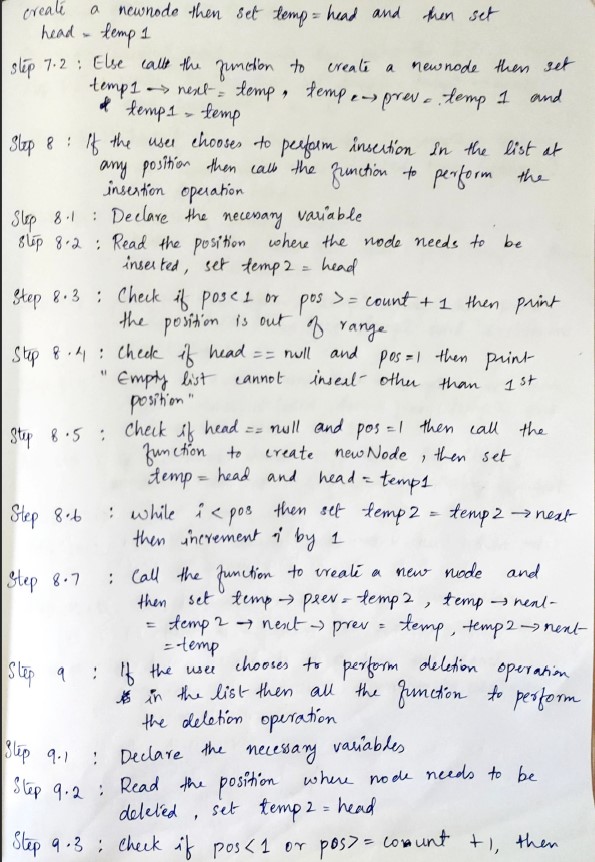 create a newnode then set temp = head and then set
head = temp 1
step 7.2 : Else calls the function to create a newnode then set
temp1 → next = temp, temp → prev = temp 1 and
temp1 = temp
Step 8 : If the user chooses to perform insertion in the list at
any position then call the function to perform the
insertion operation
Step 8.1 : Declare the necessary variable
Step 8.2 : Read the position where the node needs to be
inserted, set temp2 = head
Step 8.3 : Check if pos<1 or pos >= count + 1 then print
the position is out of range
Step 8.4 : Check if head == null and pos =1 then print
" Empty list cannot insert other than 1st
position"
Step 8.5 : Check if head == null and pos =1 then call the
function to create newNode, then set
temp = head and head = temp1
Step 8.6 : while i < pos then set temp2 = temp2 → next
then increment i by 1
Step 8.7 : Call the function to create a new node and
then set temp → prev = temp2, temp → next
= temp2 → next → prev = temp, temp2 → next
= temp
Step 9 : If the user chooses to perform deletion operation
in the list then all the function to perform
the deletion operation
Step 9.1 : Declare the necessary variables
Step 9.2 : Read the position where node needs to be
deleted, set temp2 = head
Step 9.3 : Check if pos<1 or pos>= count +1, then